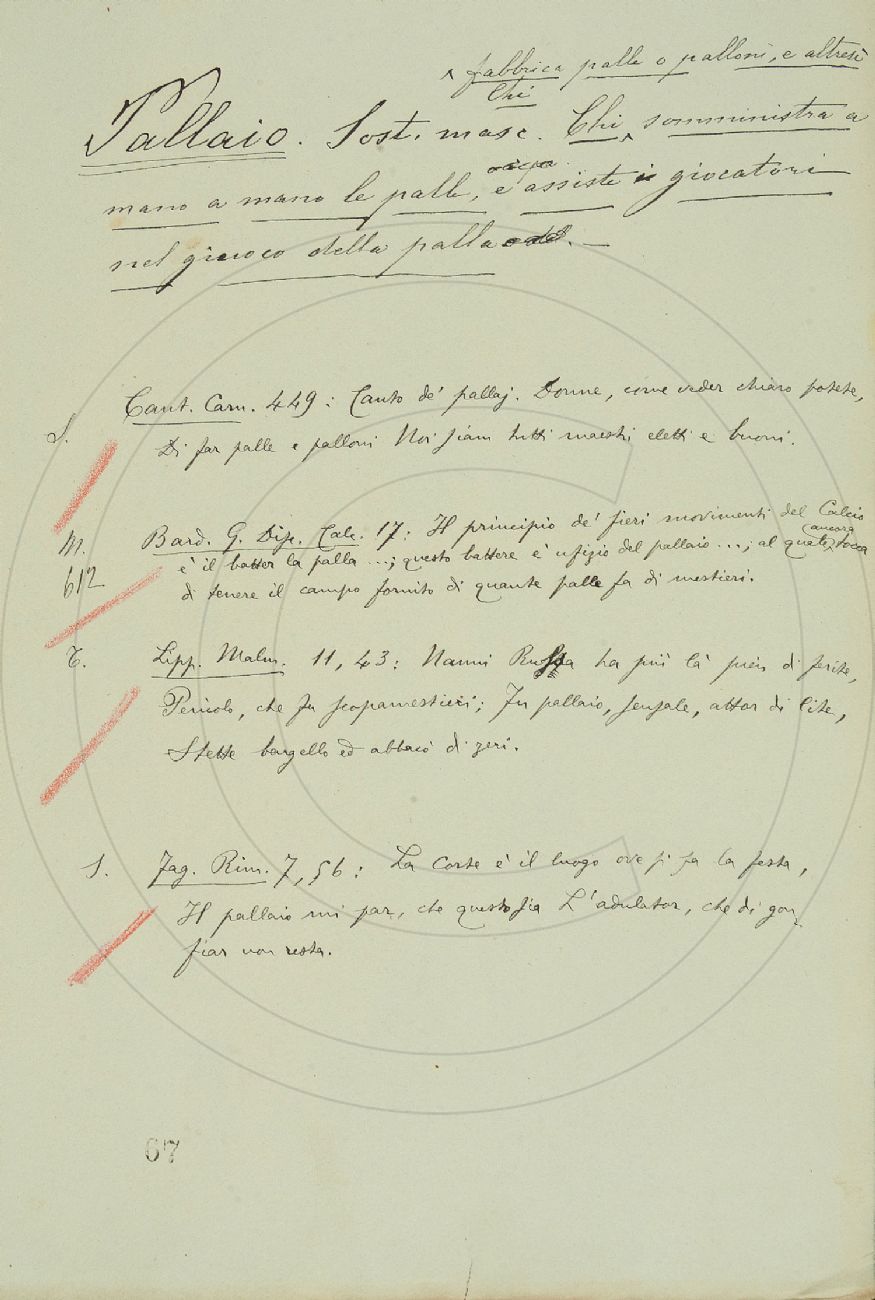 ^ fabbrica palle o palloni, e altresì
Chi
Pallaio. Sost. masc. Chi ^ somministra a
mano a mano le palle, e assiste i giocatori
nel giuoco della palla. —
S. Cant. Carn. 449: Canto de' pallaj. Donne, come veder chiaro potete,
Di far palle e palloni Noi siam tutti maestri eletti e buoni.
M. 612 Bard. G. Disc. Calc. 17: Il principio de' fieri movimenti del Calcio
è il batter la palla ...; questo battere è ufizio del pallaio ...; al quale ancora tocca
di tenere il campo fornito di quante palle fa di mestieri.
T. Lipp. Malm. 11, 43: Nanni Ruffa ha più là pien di ferite,
Pericolo, che fu scopamestieri; Fu pallaio, sensale, attor di lite,
Stette bargello ed abbacò di zeri.
S. Fag. Rim. 7, 56: La Corte è il luogo ove si fa la festa,
Il pallaio mi par, che questo sia L'adulator, che di gon-
fiar non resta.
67